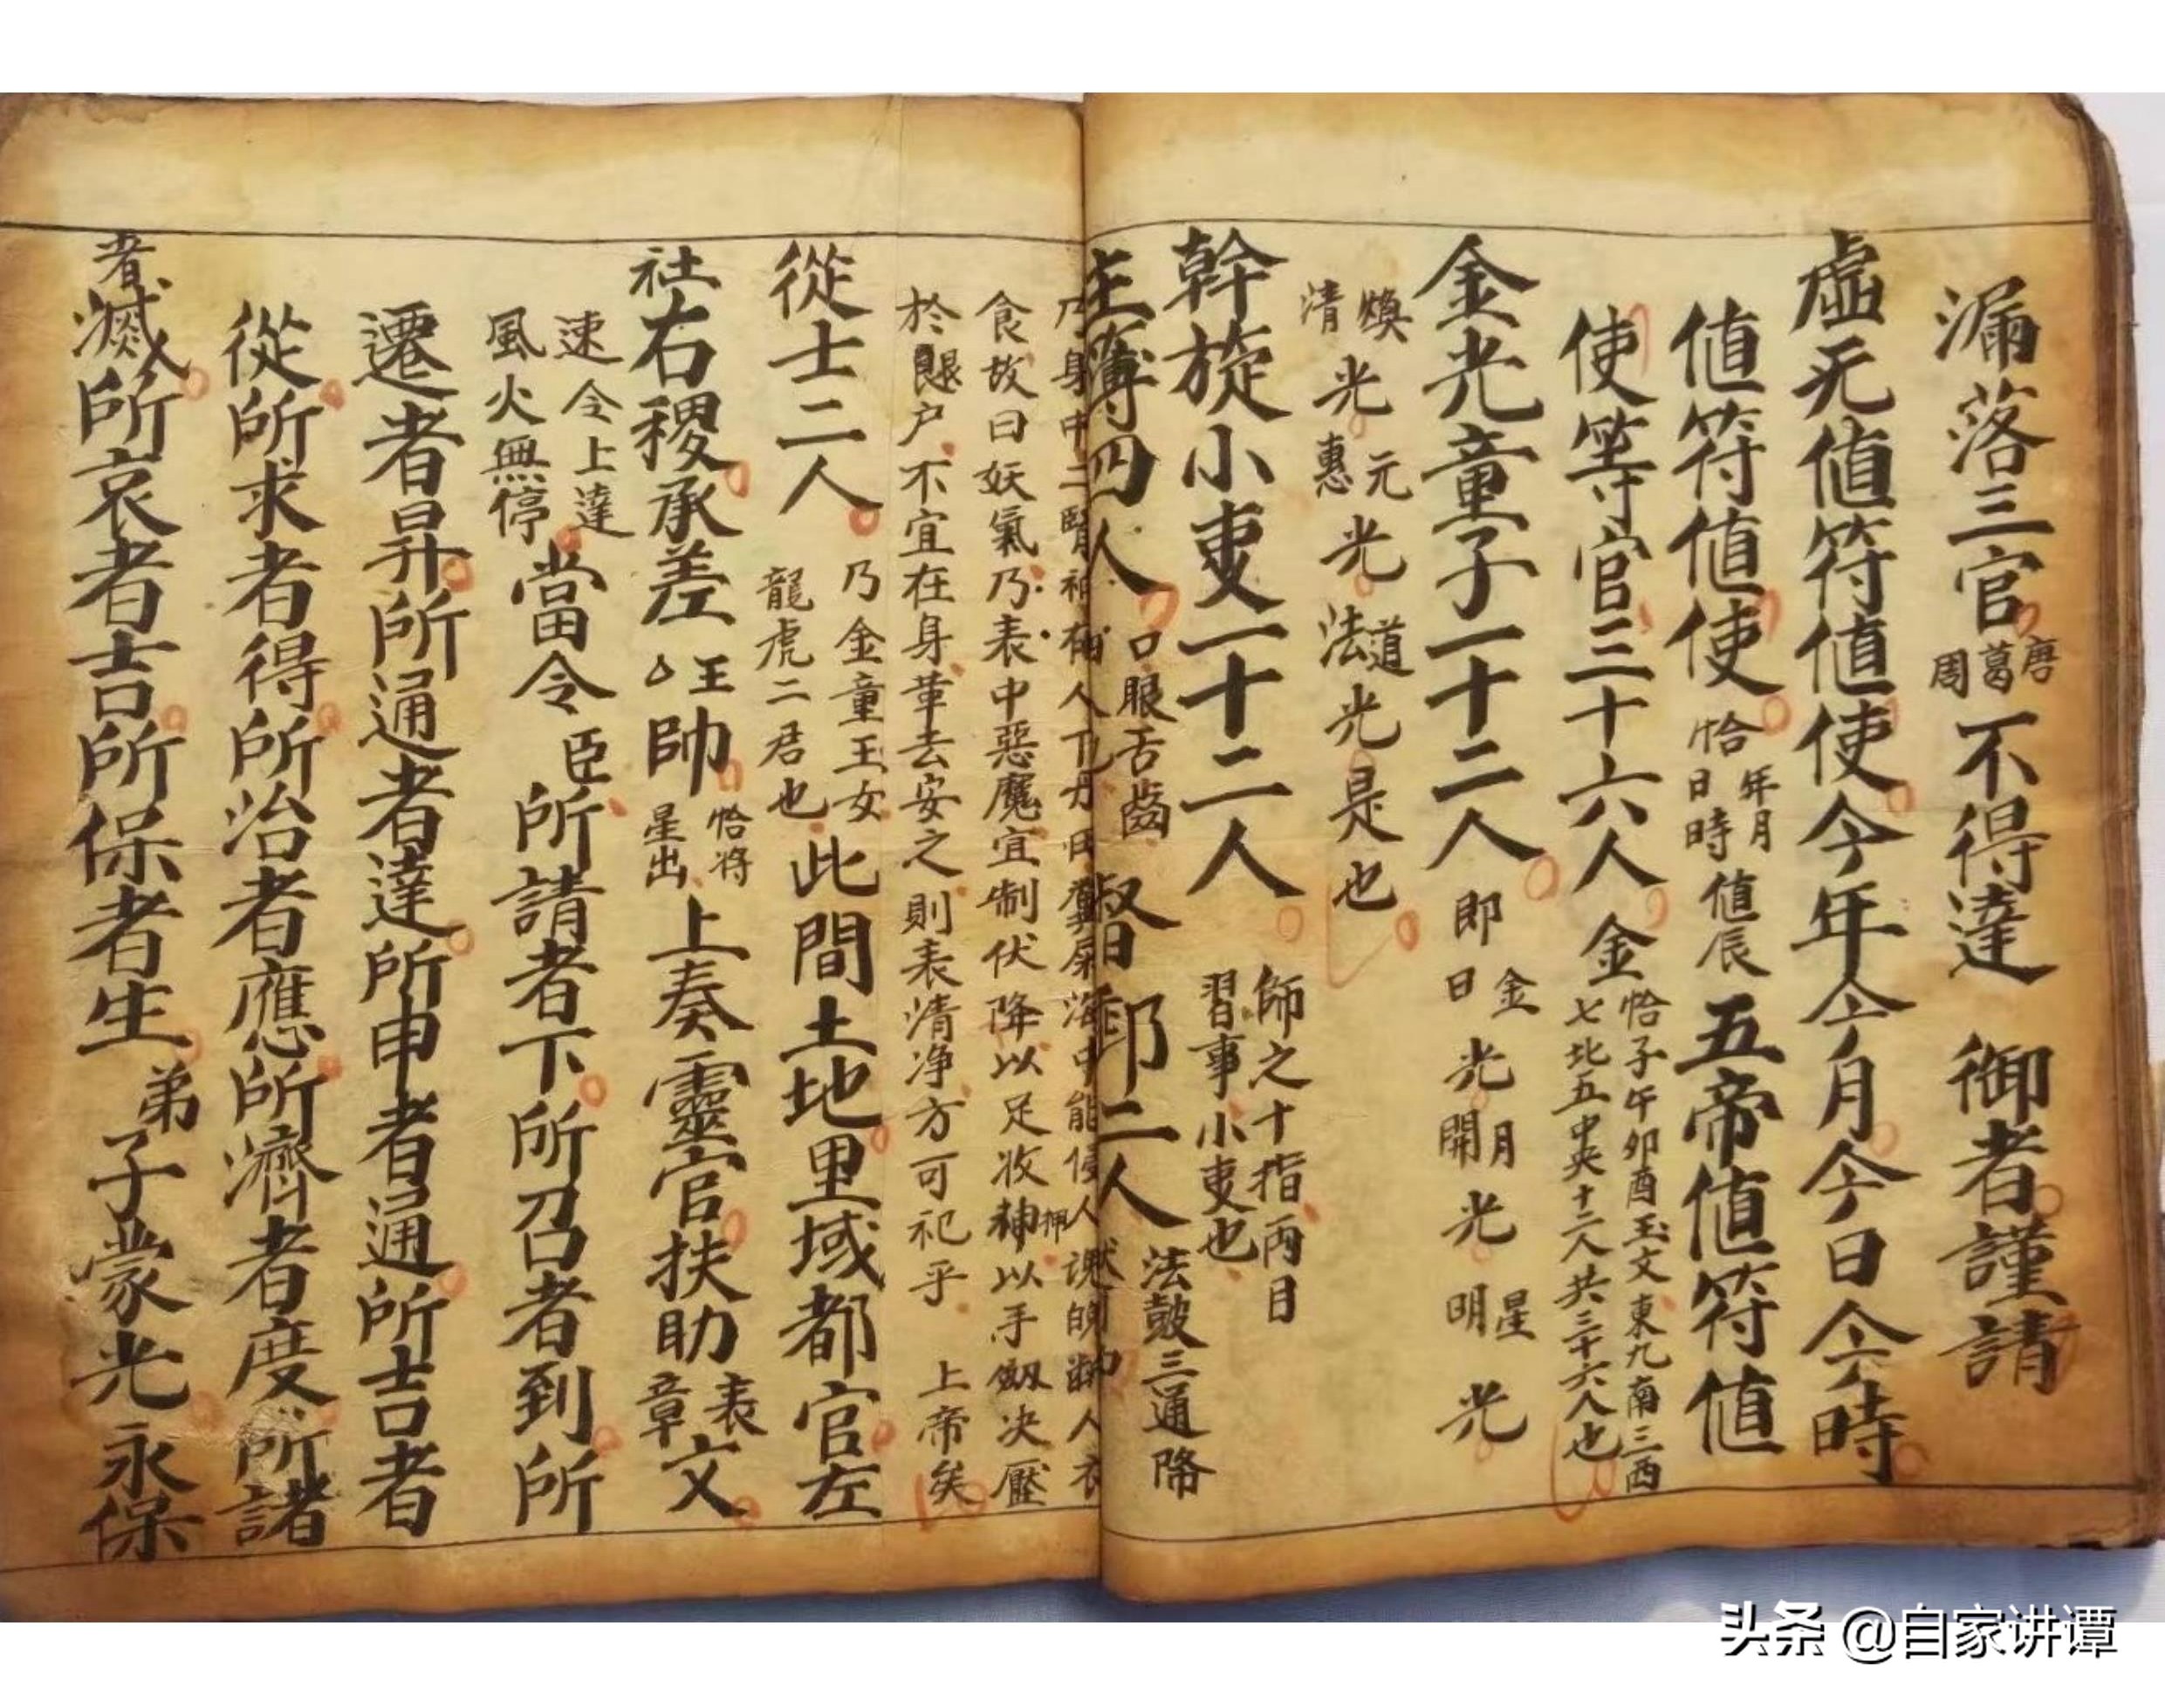 漏落三官唐葛周不得達 御者謹請
虛无値符値使今年今月今日今時
値符値使恰年月日時値辰五帝値符値
使等官三十六人 金恰子午卯酉玉文東九南三西七北五中央十二人共三十六人也
金光童子一十二人即金日光月開光星明光
煥清光元惠光道法光是也
幹旋小吏一十二人師之十指兩目習事小吏也
主簿四人口眼舌齒 督郵二人法鼓三通降
食故曰妖氣乃表中惡魔宜制伏降以足收神以手劔决壓
於艮户不宜在身華去安之則表清净方可祀乎 上帝矣
從士二人乃金童玉女龍虎二君也此間土地里域都官左
社右稷承差王帥恰將星出上奏靈官扶助表章文
速令上達風火無停當令臣所請者下所召者到所
遷者昇所通者達所申者通所吉者
從所求者得所治者應所濟者度所諸
者滅所哀者吉所保者生弟子蒙光永保
头条 @自家讲谭